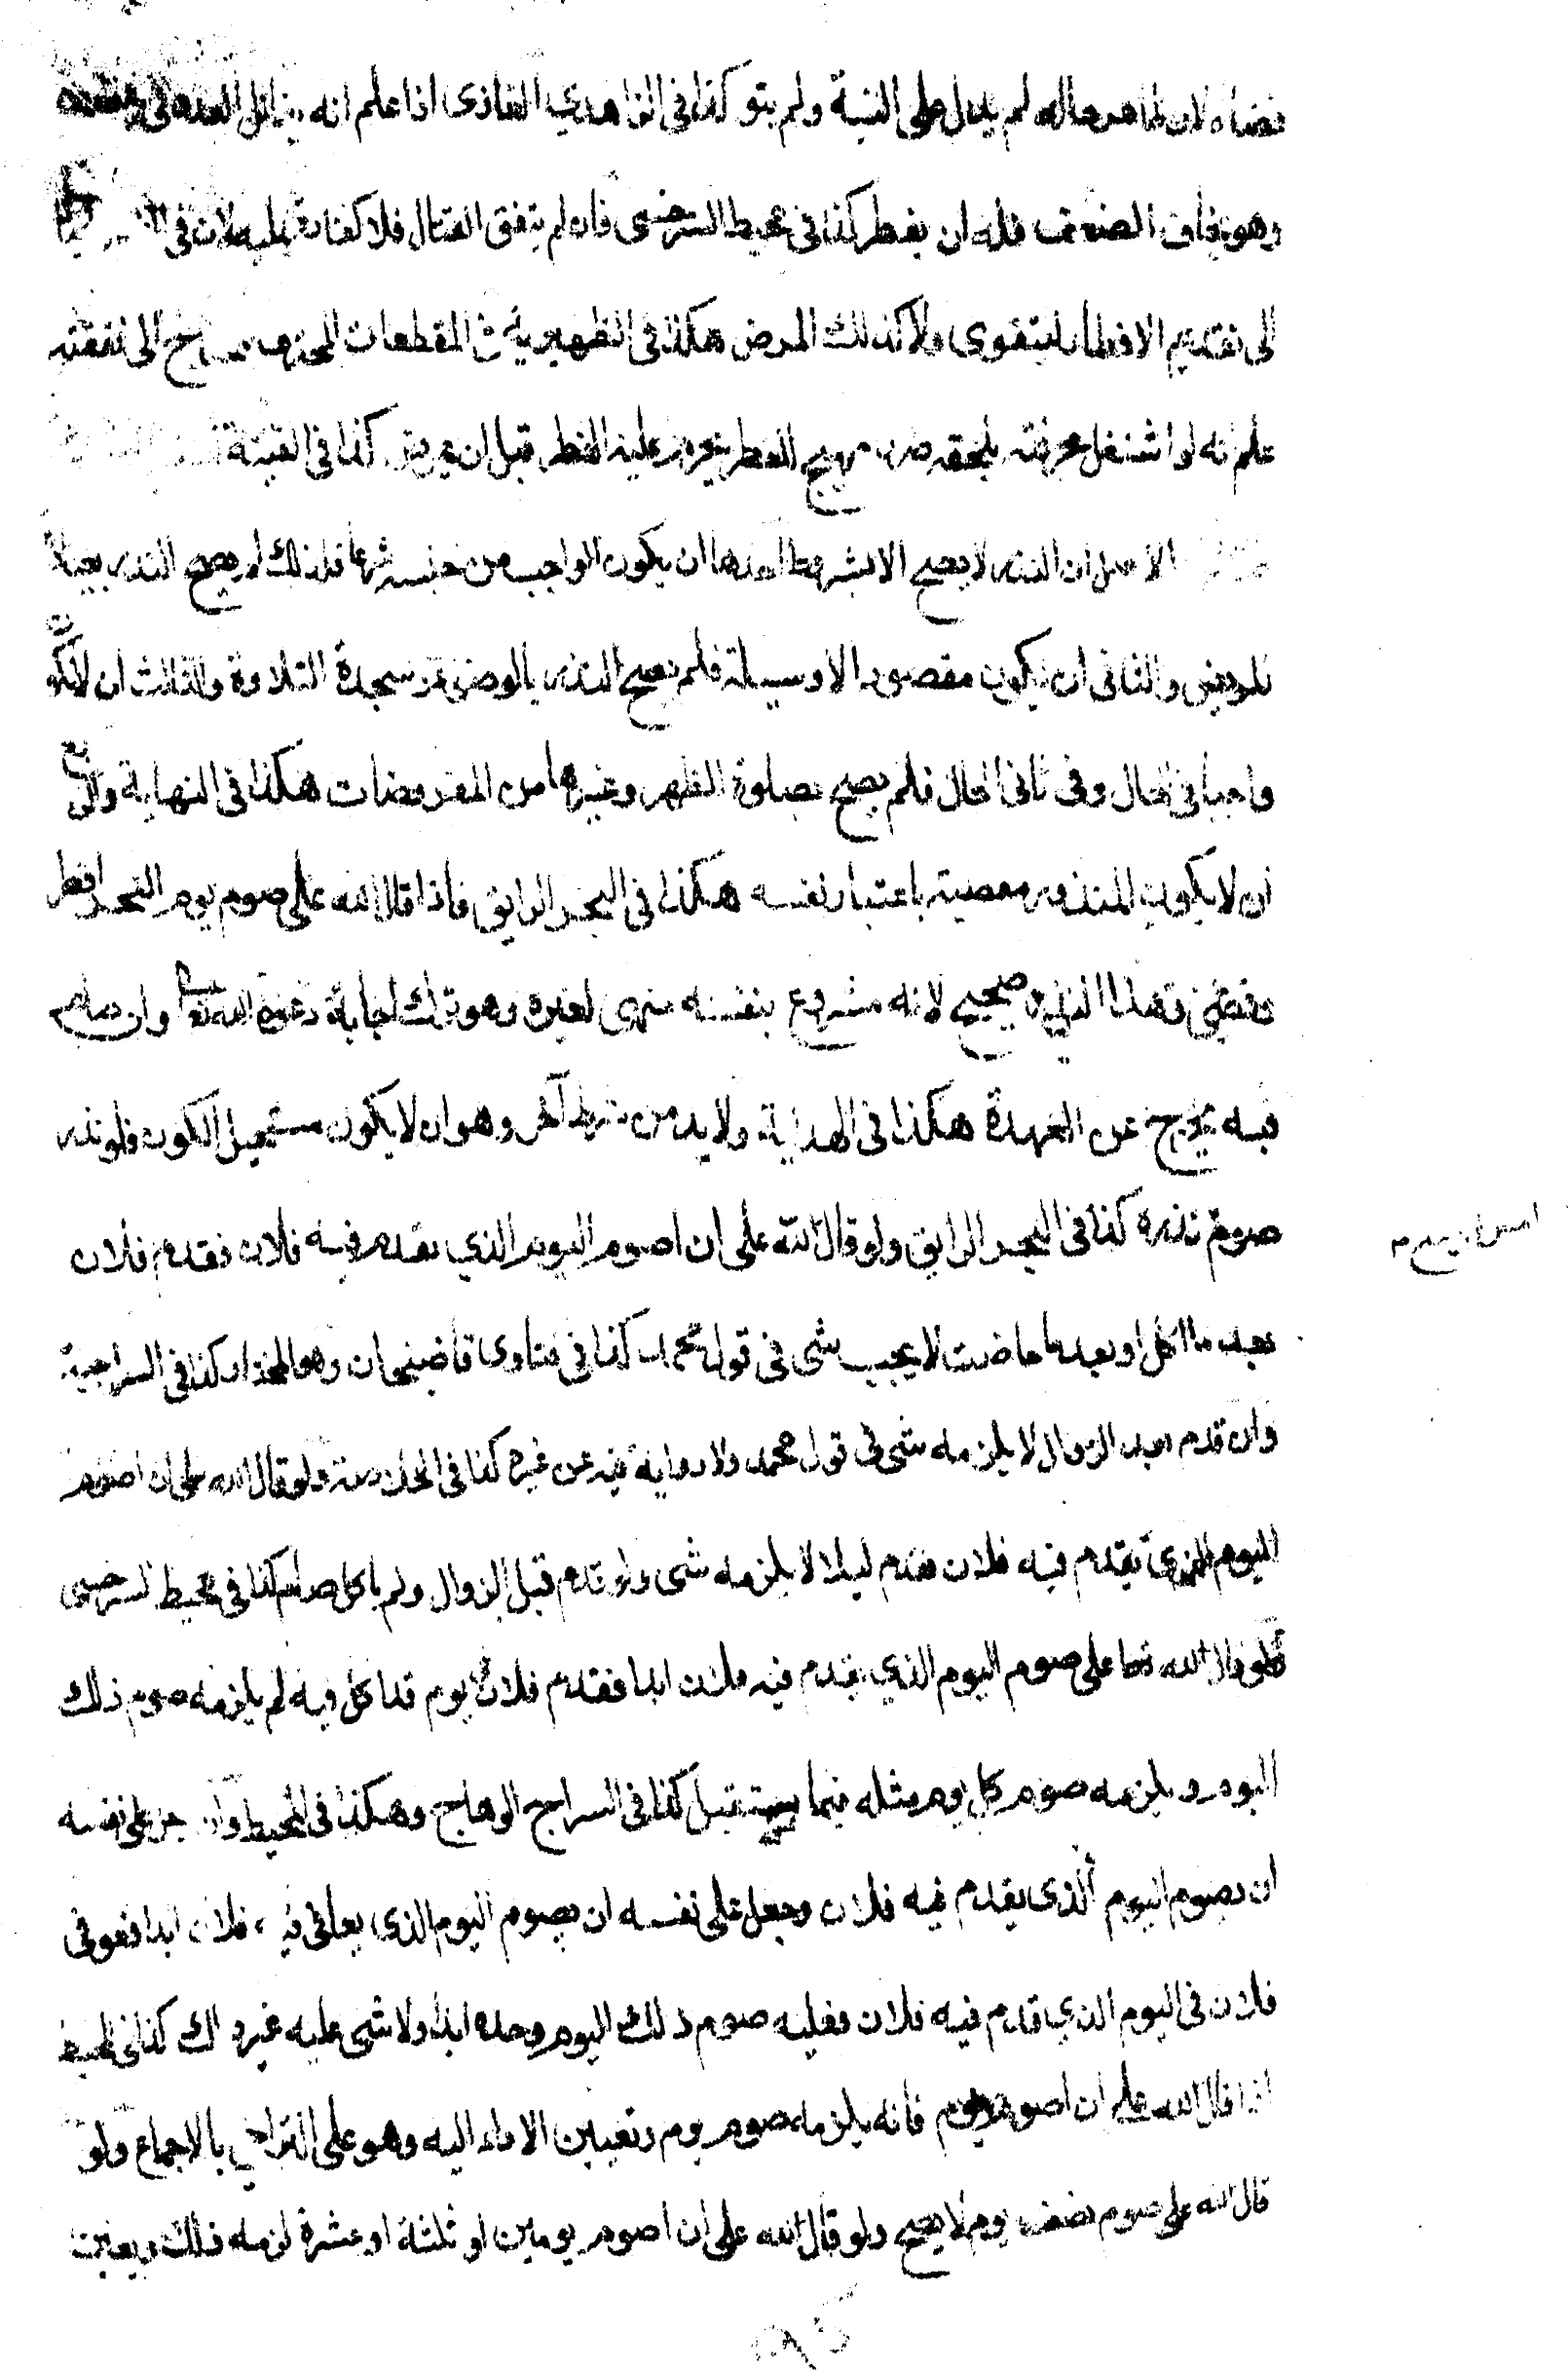 قضاء لان ظاهر حاله لم يدل على النية ولم ينو كذا فى الزاهدى الغازى اذا علم انه يقاتل العدو فى
وهو يخاف الضعف فله ان يفطر كذا فى محيط السرخسى فان لم يتفق القتال فلا كفارة عليه لان فى
الى تقديم الافطار ليتقوى ولا كذلك المرض هكذا فى الظهيرية فى المقطعات المحترف محتاج الى نفقته
علم انه لو اشتغل بحرفته يلحقه ضرر مبيح الفطر يحرم عليه الفطر قبل ان يمرض كذا فى القنية
الاصل ان النذر لا يصح الا بشروط احدها ان يكون الواجب من جنسه شرعا فلذلك لم يصح النذر بعيادة
المريض والثانى ان يكون مقصودا لا وسيلة فلم يصح النذر بالوضوء وسجدة التلاوة والثالث ان لا يكون
واجبا فى الحال وفى ثانى الحال فلم يصح بصلوة الظهر وغيرها من المفروضات هكذا فى النهاية والرابع
ان لا يكون المنذور معصية باعتبار نفسه هكذا فى البحر الرايق فاذا قال لله على صوم يوم النحر افطر
وقضى وهذا النذر صحيح لانه مشروع بنفسه منهى لغيره وهو ترك اجابة دعوة الله تعا وان صام
فيه يخرج عن العهدة هكذا فى الهداية ولا بد من شرط آخر وهو ان لا يكون مستحيل الكون فلو نذر
صوم نذره كذا فى البحر الرايق ولو قال لله على ان اصوم اليوم الذى يقدم فيه فلان فقدم فلان
بعد ما اكل او بعد ما حاضت لا يجب شى فى قول محمد كذا فى فتاوى قاضيخان وهو المختار كذا فى السراجية
وان قدم بعد الزوال لا يلزمه شى فى قول محمد ولا رواية فيه عن غيره كذا فى الخلاصة ولو قال لله على ان اصوم
اليوم الذى يقدم فيه فلان فقدم ليلا لا يلزمه شى ولو قدم قبل الزوال ولم ياكل صام كذا فى محيط السرخسى
ولو قال لله تعا على صوم اليوم الذى يقدم فيه فلان ابدا فقدم فلان يوم قد اكل فيه لم يلزمه صوم ذلك
اليوم ويلزمه صوم كل يوم مثله فيما يستقبل كذا فى السراج الوهاج وهكذا فى المحيط وان جعل على نفسه
ان يصوم اليوم الذى يقدم فيه فلان وجعل على نفسه ان يصوم اليوم الذى يعافى فيه فلان ابدا فعوفى
فلان فى اليوم الذى قدم فيه فلان فعليه صوم ذلك اليوم وحده ابدا ولا شى عليه غير ذلك كذا فى المحيط
اذا قال لله على ان اصوم يوم فانه يلزمه صوم يوم وتعيين الاداء اليه وهو على التراخى بالاجماع ولو
قال لله على صوم نصف يوم لا يصح ولو قال لله على ان اصوم يومين او ثلثة او عشرة لزمه ذلك ويعين